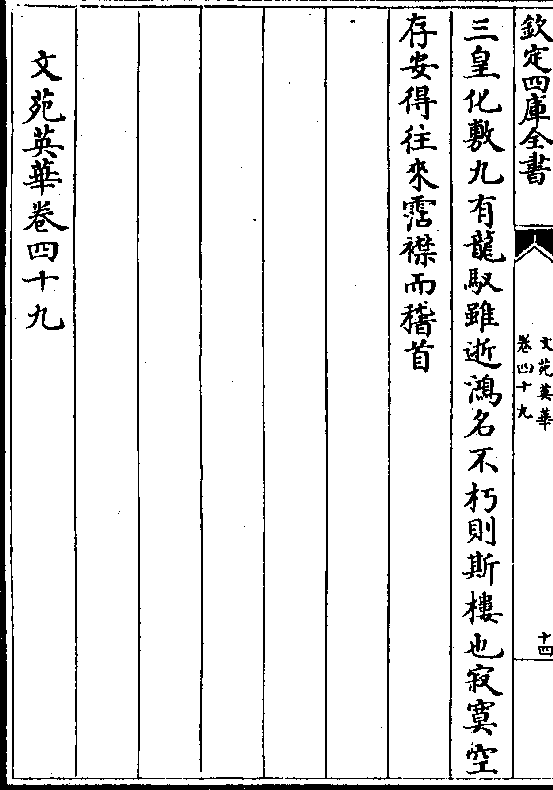 欽定四庫全書
文苑英華
卷四十九
十四
三皇化敷九有龍馭雖逝鴻名不朽則斯樓也寂寞空
存安得往來霑襟而稽首
文苑英華卷四十九